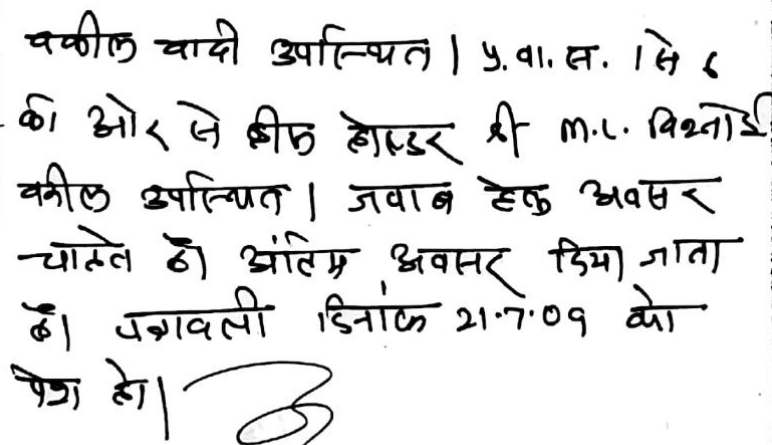 वकील वादी उपस्थित। प्र.वा.स. 1 से 6
की ओर से ब्रीफ होल्डर श्री M.L. विश्नोई
वकील उपस्थित। जवाब हेतु अवसर
चाहते है। अंतिम अवसर दिया जाता
है। पत्रावली दिनांक 21.7.09 को
पेश हो।